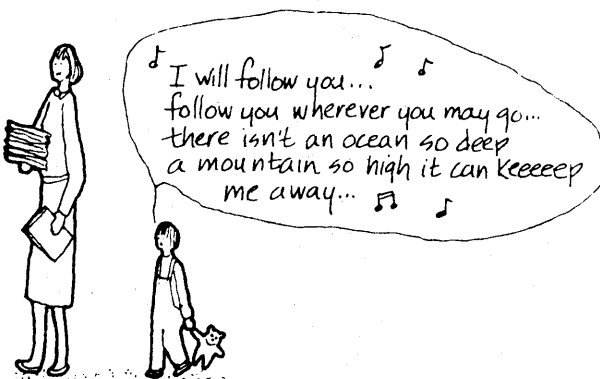 I will follow you...
follow you wherever you may go...
there isn't an ocean so deep
a mountain so high it can keeeeep
me away...